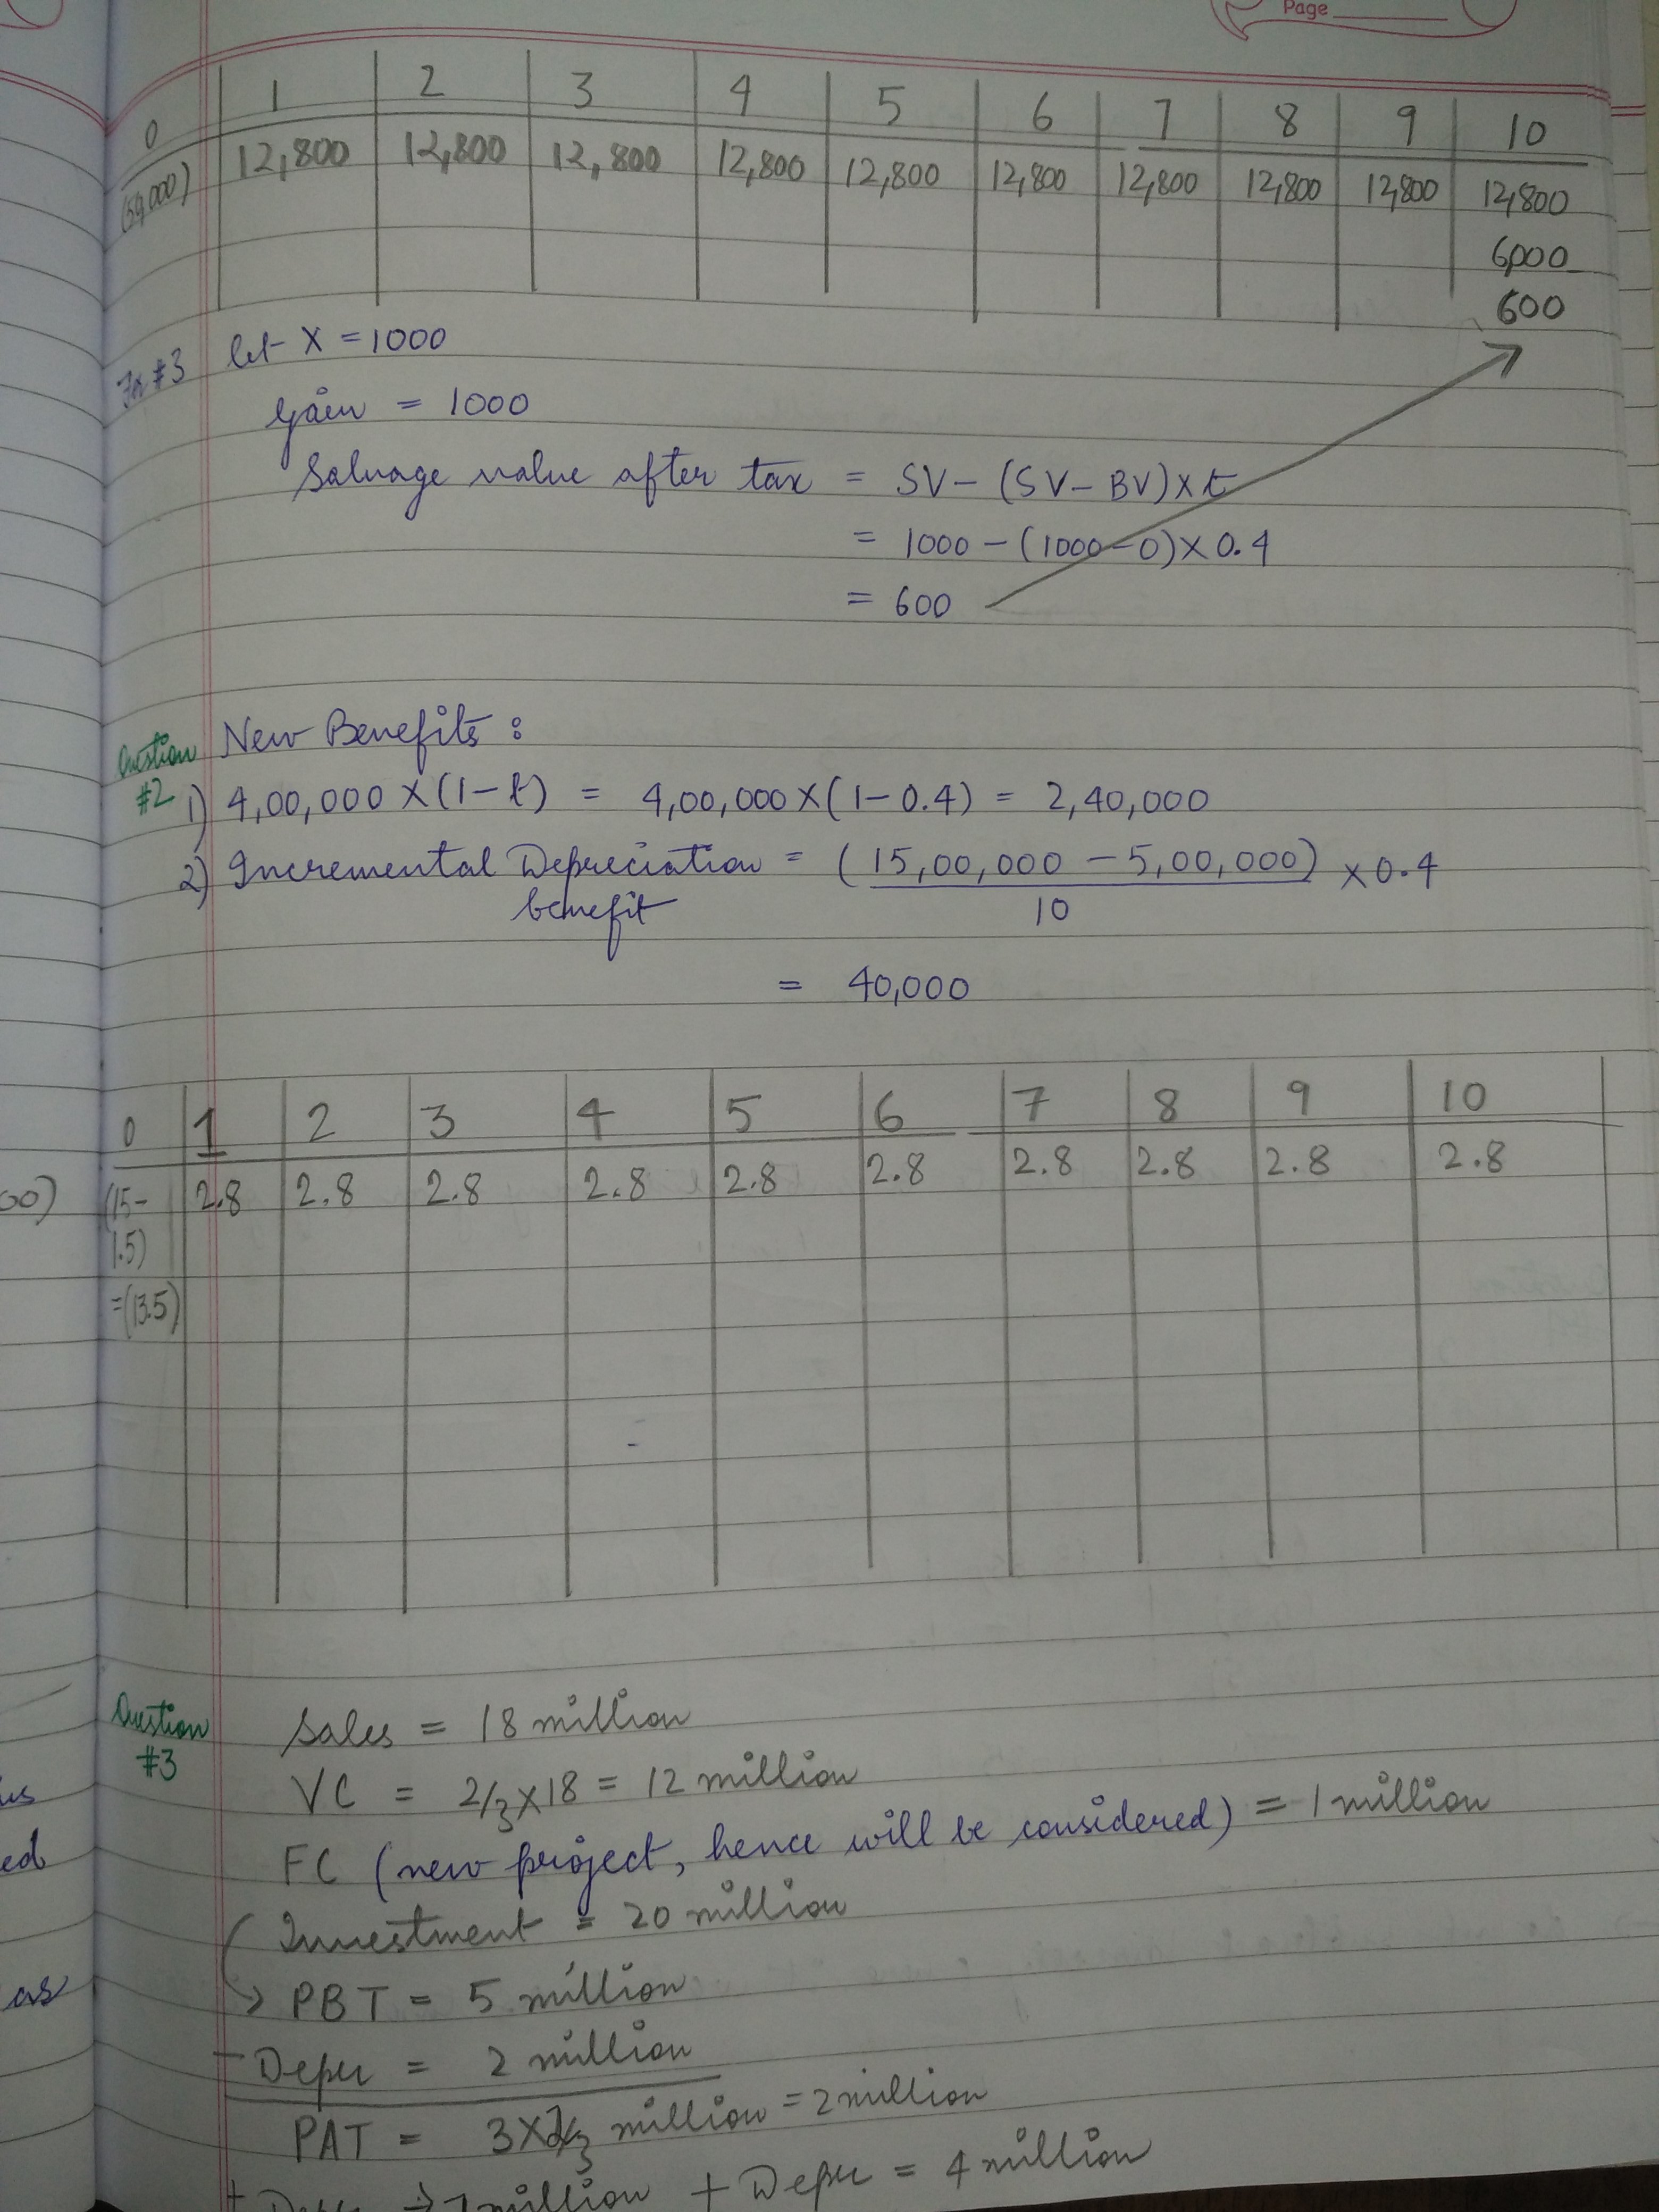 Page
0 1 2 3 4 5 6 7 8 9 10
12,800 12,800 12,800 12,800 12,800 12,800 12,800 12,800 12,800 12,800
6,000
600
#3 let X = 1000
Gain = 1000
Salvage value after tax = SV - (SV - BV) X t
= 1000 - (1000 - 0) X 0.4
= 600
Question #2 New Benefits :
1) 4,00,000 X (1 - t) = 4,00,000 X (1 - 0.4) = 2,40,000
2) Incremental Depreciation = (15,00,000 - 5,00,000) X 0.4
benefit 10
= 40,000
0 1 2 3 4 5 6 7 8 9 10
00) (15- 2.8 2.8 2.8 2.8 2.8 2.8 2.8 2.8 2.8 2.8
1.5)
=(13.5)
Question #3 Sales = 18 million
VC = 2/3 X 18 = 12 million
FC (new project, hence will be considered) = 1 million
ed
Investment = 20 million
as
PBT = 5 million
- Depr = 2 million
PAT = 3 X 2/3 million = 2 million
million + Depr = 4 million